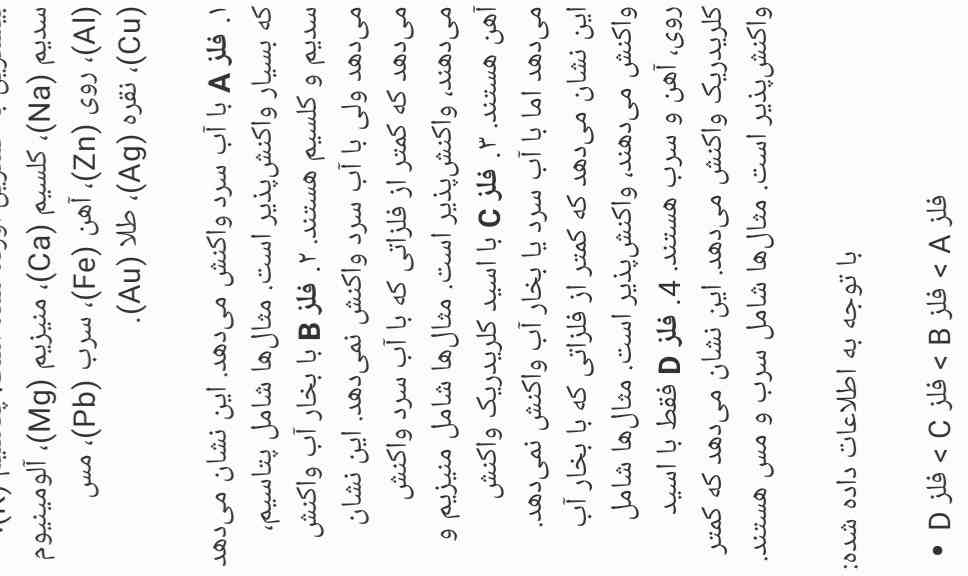 سدیم (Na)، کلسیم (Ca)، منیزیم (Mg)، آلومینیوم
(Al)، روی (Zn)، آهن (Fe)، سرب (Pb)، مس
(Cu)، نقره (Ag)، طلا (Au).
۱. فلز A با آب سرد واکنش می‌دهد. این نشان می‌دهد
که بسیار واکنش‌پذیر است. مثال‌ها شامل پتاسیم،
سدیم و کلسیم هستند. ۲. فلز B با بخار آب واکنش
می‌دهد ولی با آب سرد واکنش نمی‌دهد. این نشان
می‌دهد که کمتر از فلزاتی که با آب سرد واکنش
می‌دهند، واکنش‌پذیر است. مثال‌ها شامل منیزیم و
آهن هستند. ۳. فلز C با اسید کلریدریک واکنش
می‌دهد اما با آب سرد یا بخار آب واکنش نمی‌دهد.
این نشان می‌دهد که کمتر از فلزاتی که با بخار آب
واکنش می‌دهند، واکنش‌پذیر است. مثال‌ها شامل
روی، آهن و سرب هستند. 4. فلز D فقط با اسید
کلریدریک واکنش می‌دهد. این نشان می‌دهد که کمتر
واکنش‌پذیر است. مثال‌ها شامل سرب و مس هستند.
با توجه به اطلاعات داده شده:
• فلز A > فلز B > فلز C > فلز D